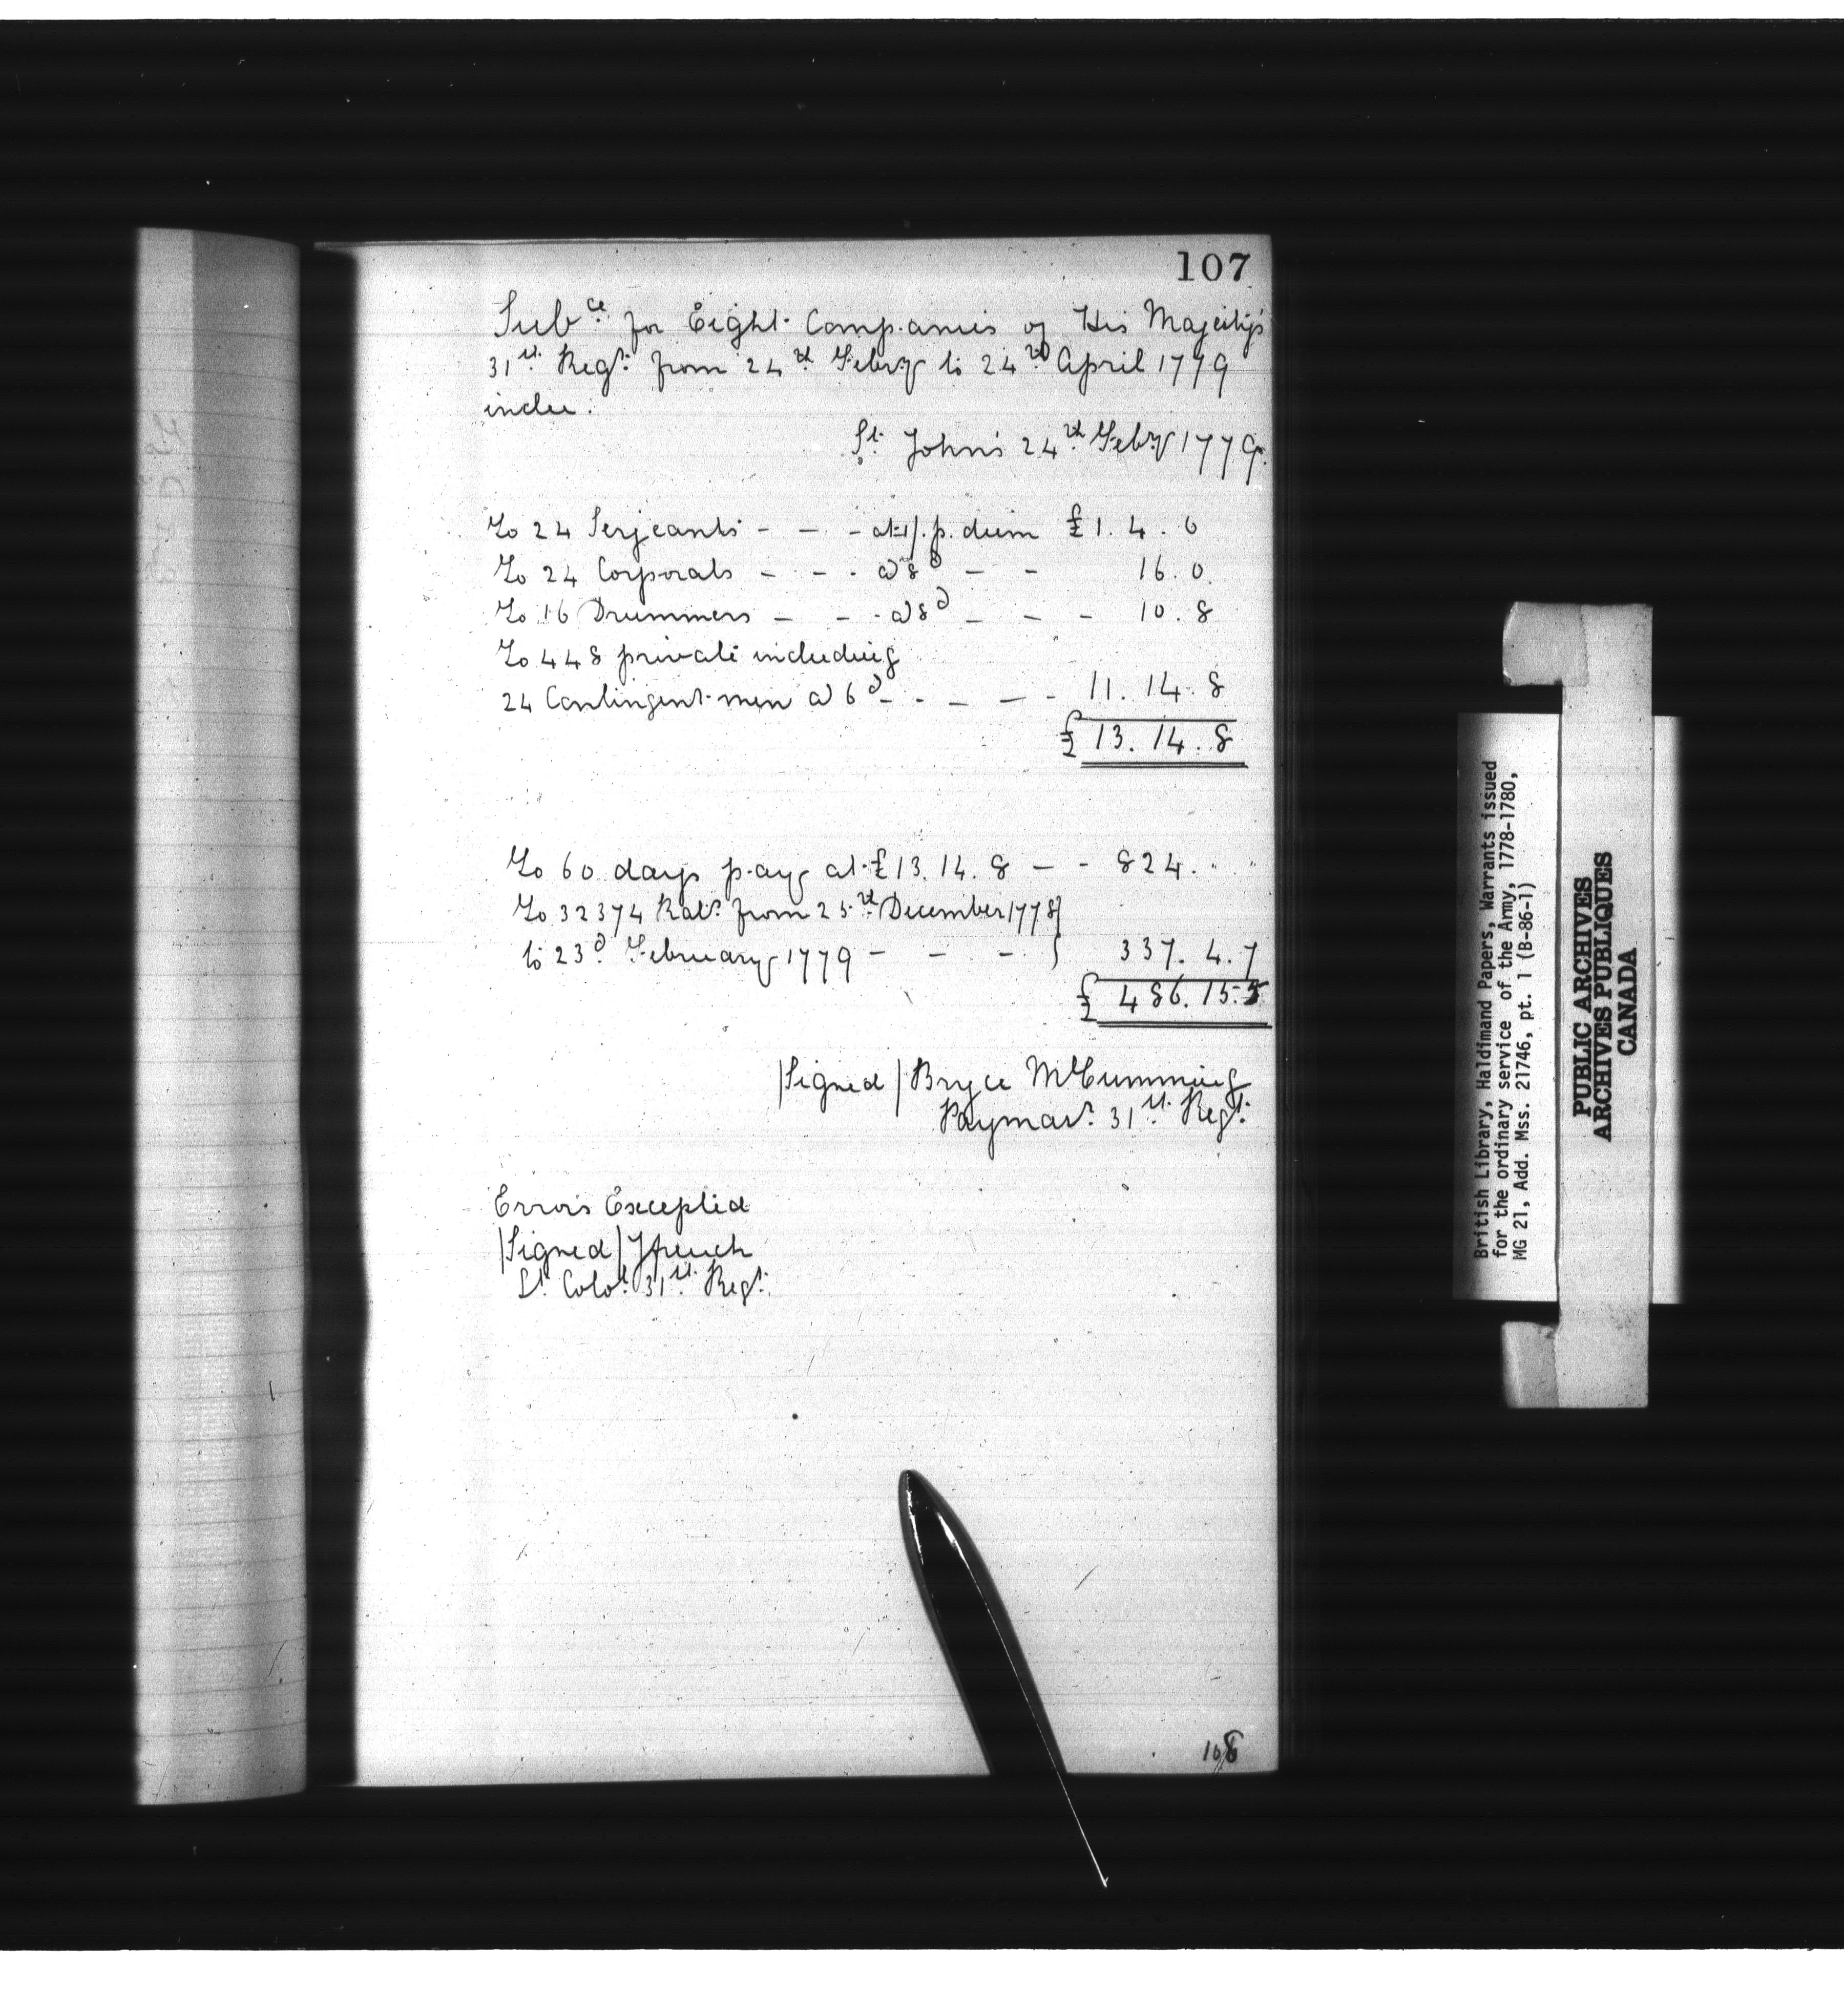 107
Sub.ce for Eight Companies of His Majesty's
31st Regt. from 24th Febry to 24th April 1779
inclu.
St. John's 24th Febry 1779.
To 24 Serjeants - - - at 1/. p. diem £1. 4. 0
To 24 Corporals - - - a 8d - - 16. 0.
To 16 Drummers - - - a 8d - - - 10. 8
To 448 private including
24 Contingent men a 6d - - - - - 11. 14. 8
£ 13. 14. 8
To 60 days pay at £13. 14. 8 - - 824. " "
To 32374 Rats. from 25th December 1778}
to 23d February 1779 - - - } 337. 4. 7
£ 486. 15. 5
|Signed| Bryce McCumming
Paymasr. 31st Regt.
Errors Excepted
|Signed| Jffrench
Lt. Colol. 31st Regt.
108
British Library, Haldimand Papers, Warrants issued
for the ordinary service of the Army, 1778-1780,
MG 21, Add. Mss. 21746, pt. 1 (B-86-1)
PUBLIC ARCHIVES
ARCHIVES PUBLIQUES
CANADA